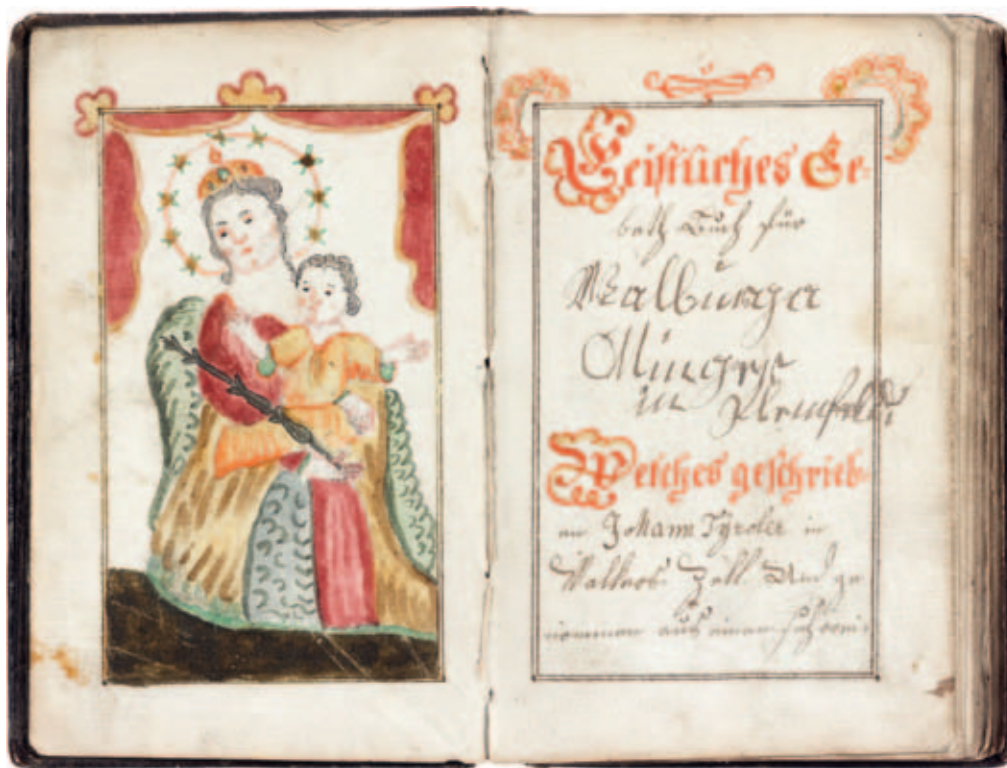 Geistliches Ge-
beth Buch für
Walburga
in Pleinfeld
Welches geschrieb-
en Johann Tyroler in
Zell Und ge
nommen auß einem